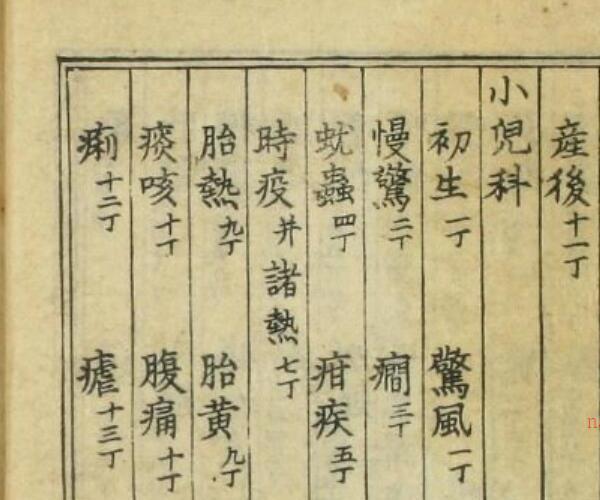 産後十一丁
小児科
初生一丁 驚風一丁
慢驚二丁 癇三丁
蚘蟲四丁 疳疾五丁
時疫并諸熱七丁
胎熱九丁 胎黄九丁
痰咳十丁 腹痛十丁
痢十二丁 瘧十三丁